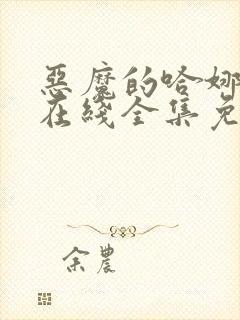 惡魔的哈娜
在綫全集免
余農